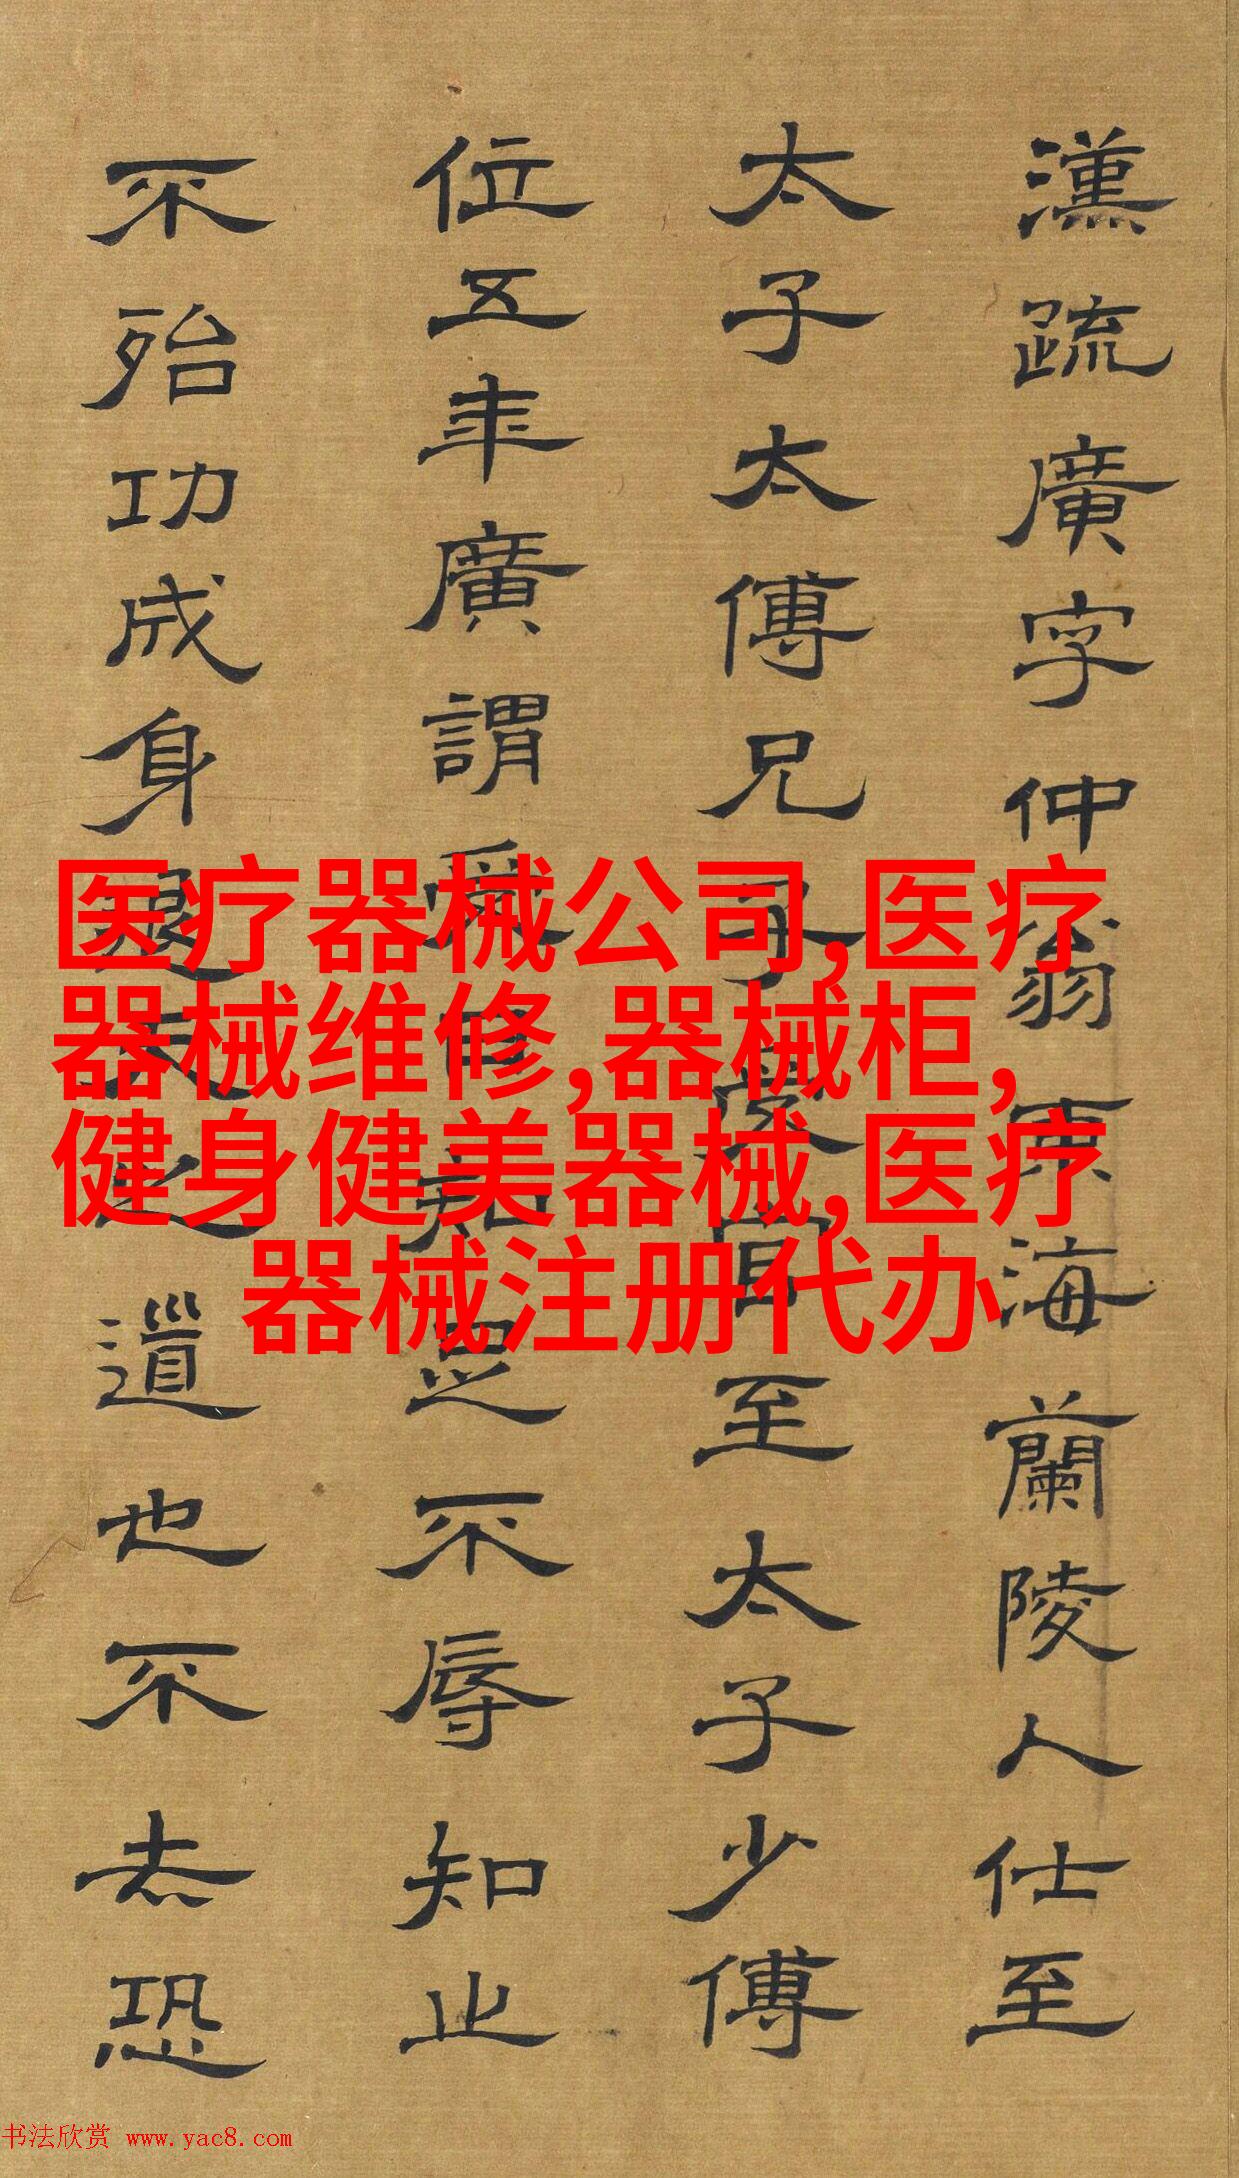 漢疏廣字仲翁東海蘭陵人仕至
太子太傅兄子受官至太子少傅
位五年廣謂受曰知足不辱知止
不殆功成身退天之道也不去恐
医疗器械公司,医疗
器械维修,器械柜,
健身健美器械,医疗
器械注册代办
书法欣赏 www.yac8.com